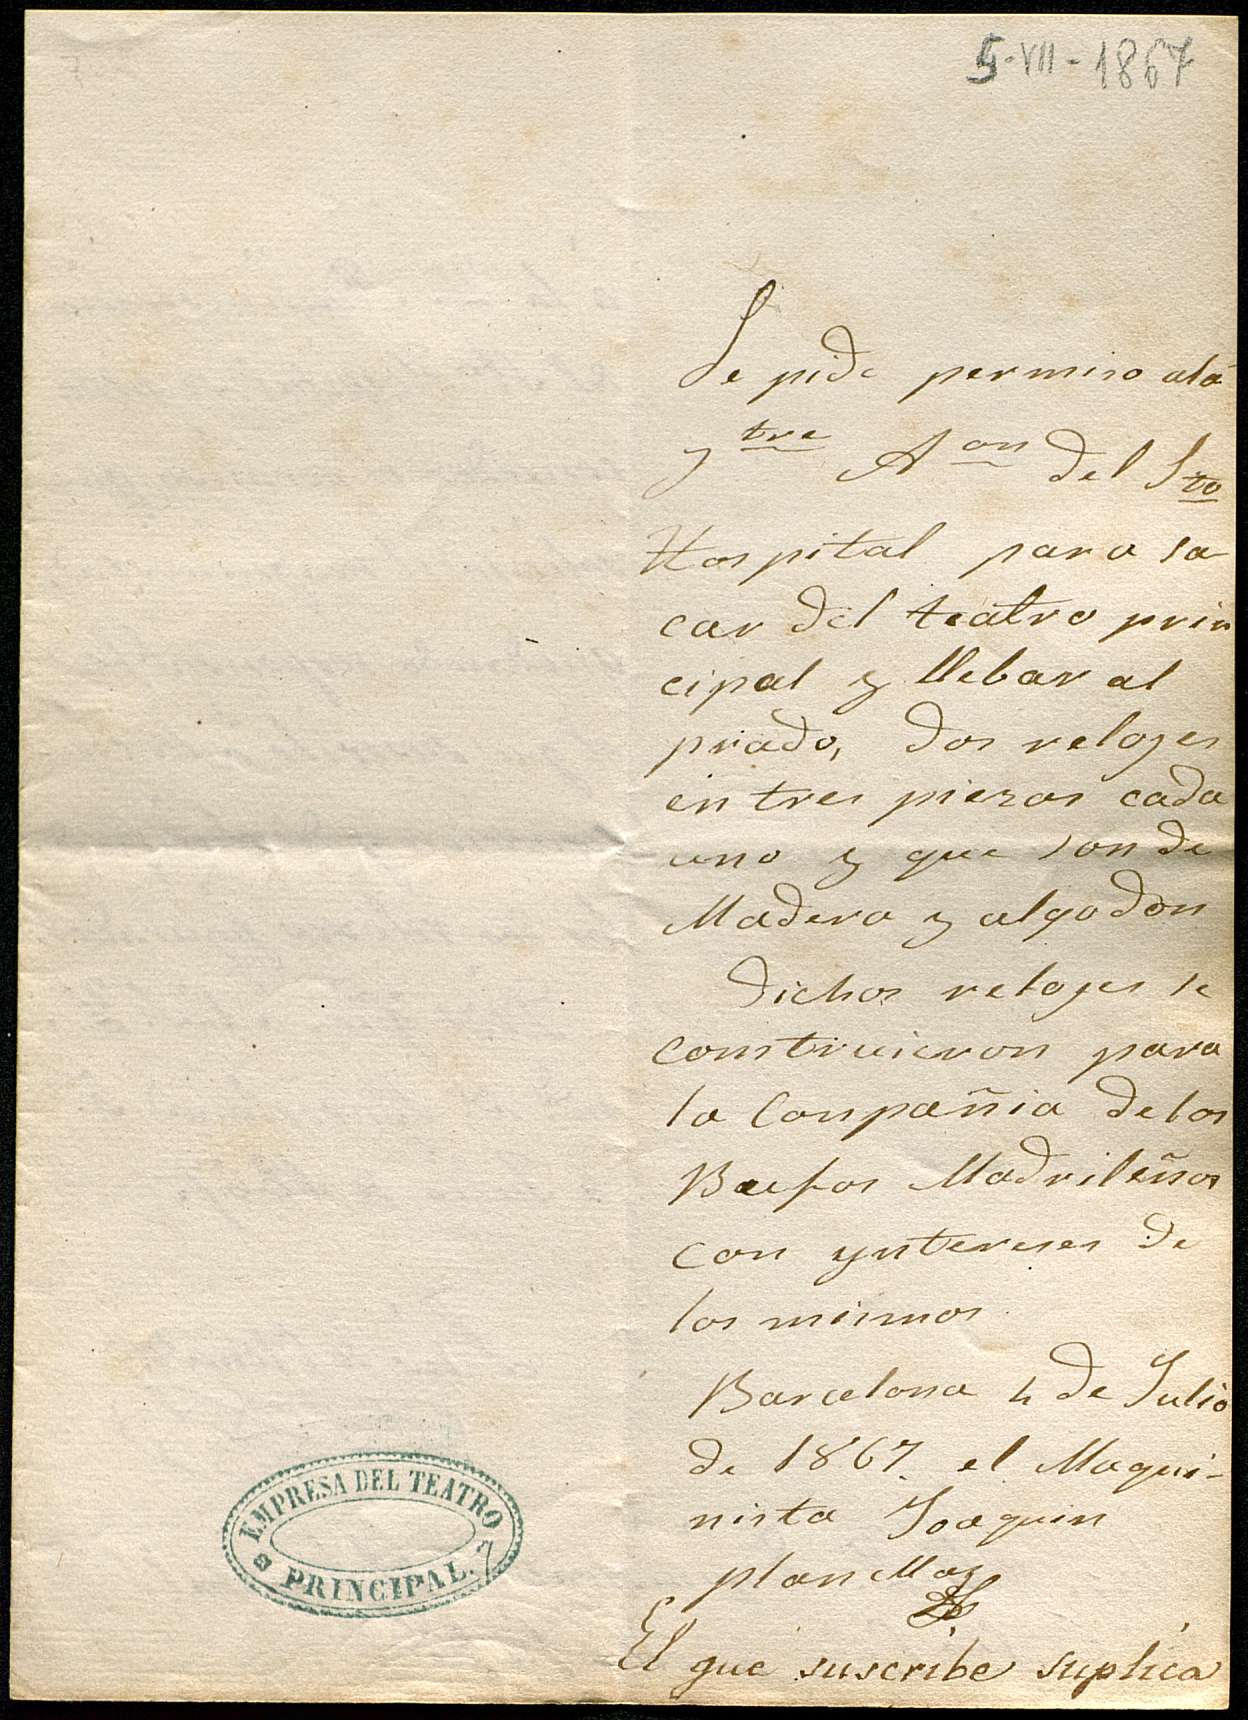 5-VII-1867
Se pide permiso alá
Ytre Aon del Sto
Hospital para sa
car del teatro prin
cipal y llebar al
prado, dos relojes
en tres piezas cada
uno y que son de
Madera y algodon
dichos relojes se
construieron para
la Conpañia de los
Bufos Madrileños
con yntereses de
los mismos
Barcelona 4 de Julio
de 1867. el Maqui-
nista Joaquin
plan
El que suscribe suplica
EMPRESA DEL TEATRO
PRINCIPAL.